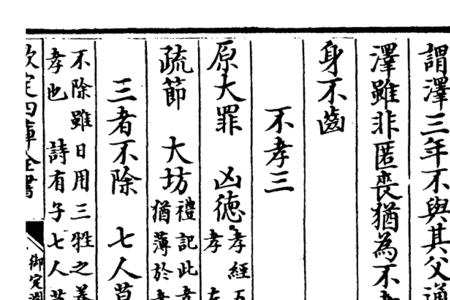 謂澤三年不與其父通
澤雖非匿喪猶為不孝
身不齒
不孝三
原大罪 凶德 孝經五
孝 左
疏節 大坊 禮記此孝
猶薄於孝
三者不除 七人莫
不除雖日用三牲之養
孝也 詩有子七人莫
欽定四庫全書
御定淵